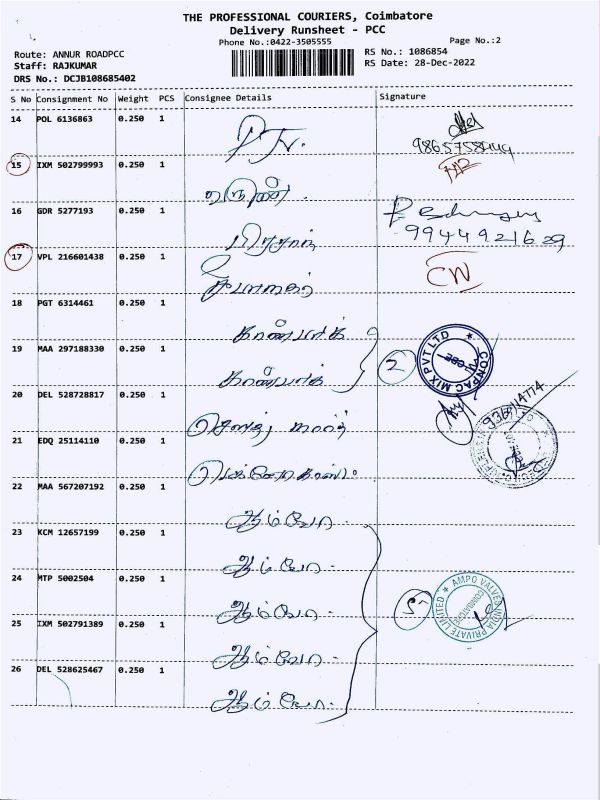 THE PROFESSIONAL COURIERS, Coimbatore
Delivery Runsheet - PCC
Phone No.:0422-3505555
Page No.:2
Route: ANNUR ROADPCC
RS No.: 1086854
Staff: RAJKUMAR
RS Date: 28-Dec-2022
DRS No.: DCJB108685402
S No Consignment No Weight PCS Consignee Details Signature
14 POL 6136863 0.250 1
15 IXM 502799993 0.250 1
அருண்
16 GDR 5277193 0.250 1
9944921629
17 VPL 216601438 0.250 1
CW
18 PGT 6314461 0.250 1
கான்பாக்
19 MAA 297188330 0.250 1
கான்பாக்
2
CONPAC MIX PVT LTD
CBE
20 DEL 528728817 0.250 1
21 EDQ 25114110 0.250 1
22 MAA 567207192 0.250 1
ஆம்போ
23 KCM 12657199 0.250 1
ஆம்போ
24 MTP 5002504 0.250 1
ஆம்போ
5
AMPO VALVES INDIA PRIVATE LIMITED
COIMBATORE
25 IXM 502791389 0.250 1
ஆம்போ
26 DEL 528625467 0.250 1
ஆம்போ